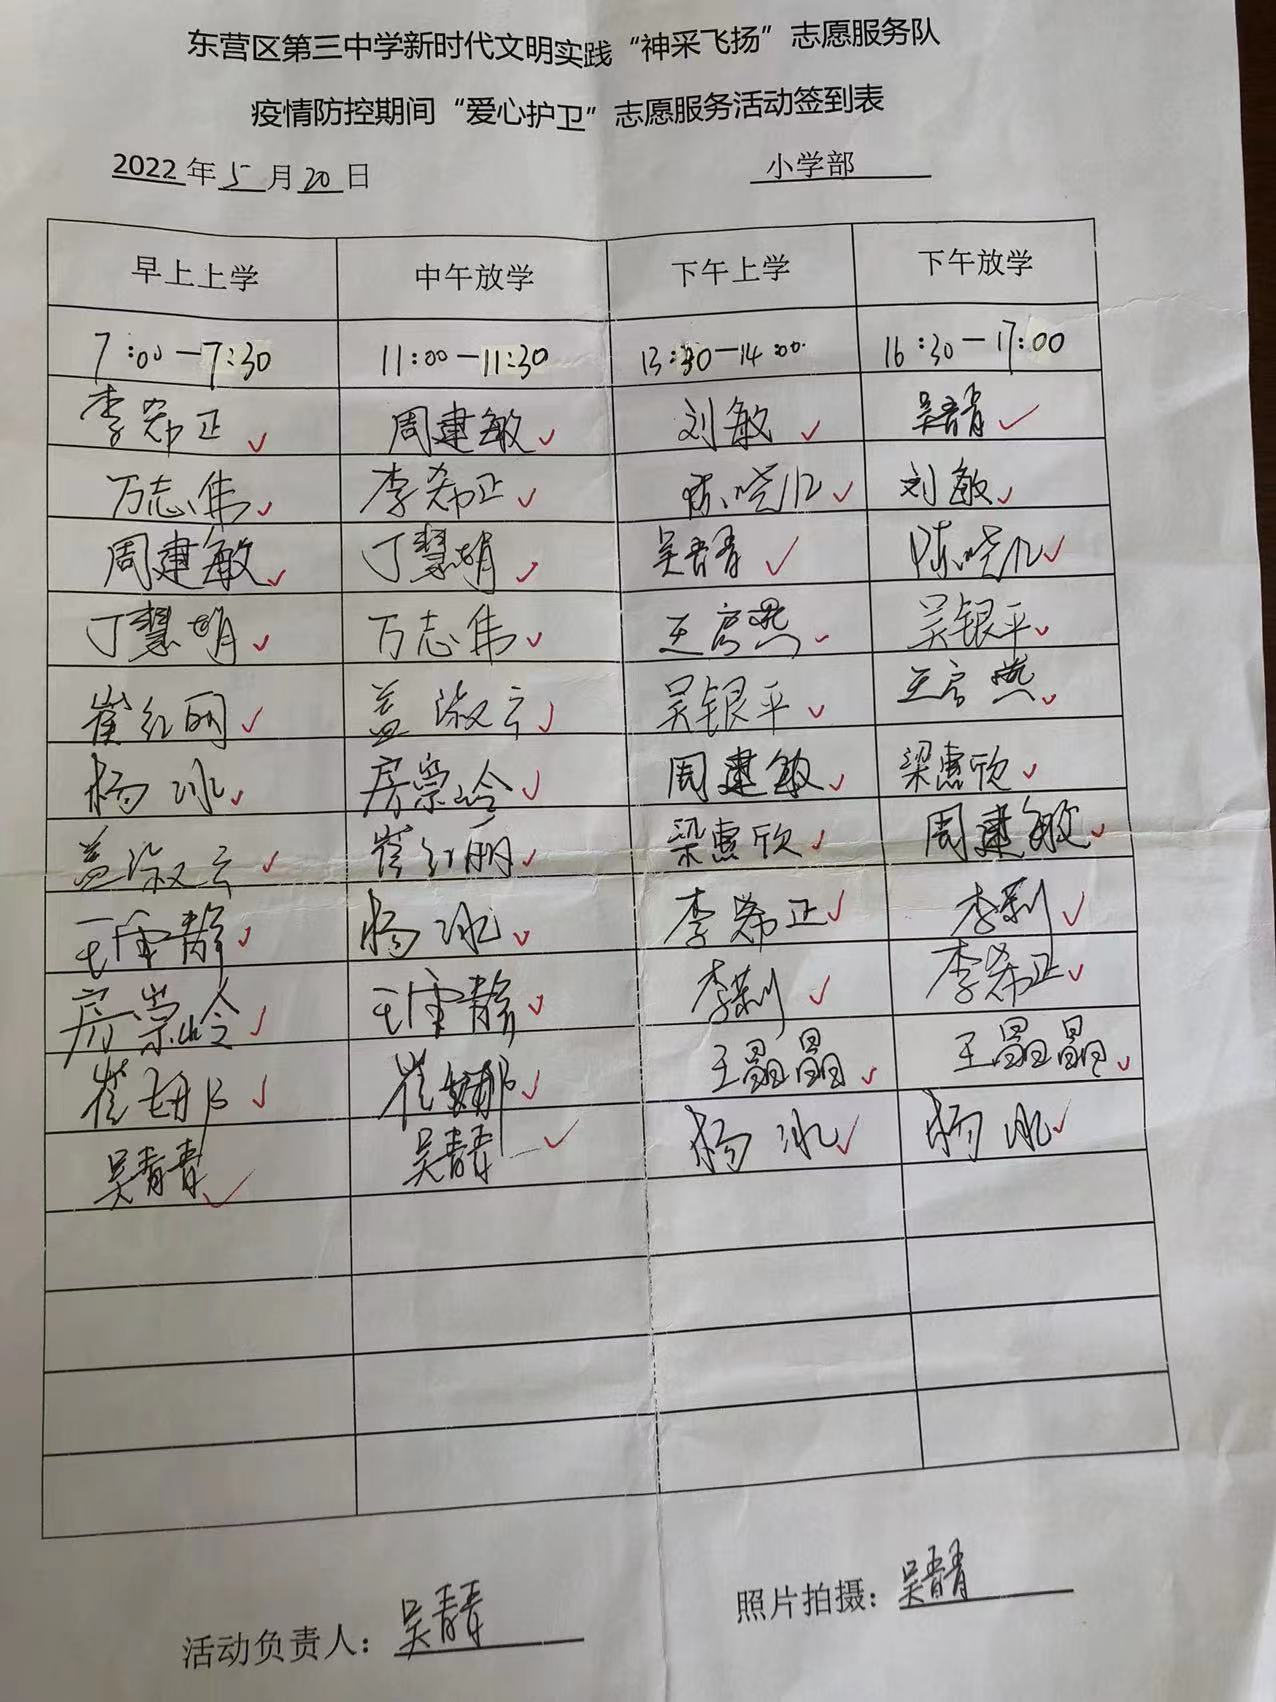 东营区第三中学新时代文明实践“神采飞扬”志愿服务队
疫情防控期间“爱心护卫”志愿服务活动签到表
2022年5月20日 小学部
早上上学 中午放学 下午上学 下午放学
7:00—7:30 11:00—11:30 13:30—14:00 16:30—17:00
李希正 周建敏 刘敏 吴青青
万志伟 李希正 陈晓红 刘敏
周建敏 丁慧娟 吴青青 陈晓红
丁慧娟 万志伟 王官燕 吴银平
崔红丽 盖淑云 吴银平 王官燕
杨冰 房崇岭 周建敏 梁惠欣
盖淑云 崔红丽 梁惠欣 周建敏
王雪静 杨冰 李希正 李莉
房崇岭 王雪静 李莉 李希正
崔娜 崔娜 王晶晶 王晶晶
吴青青 吴青青 杨冰 杨冰
活动负责人：吴青青 照片拍摄：吴青青